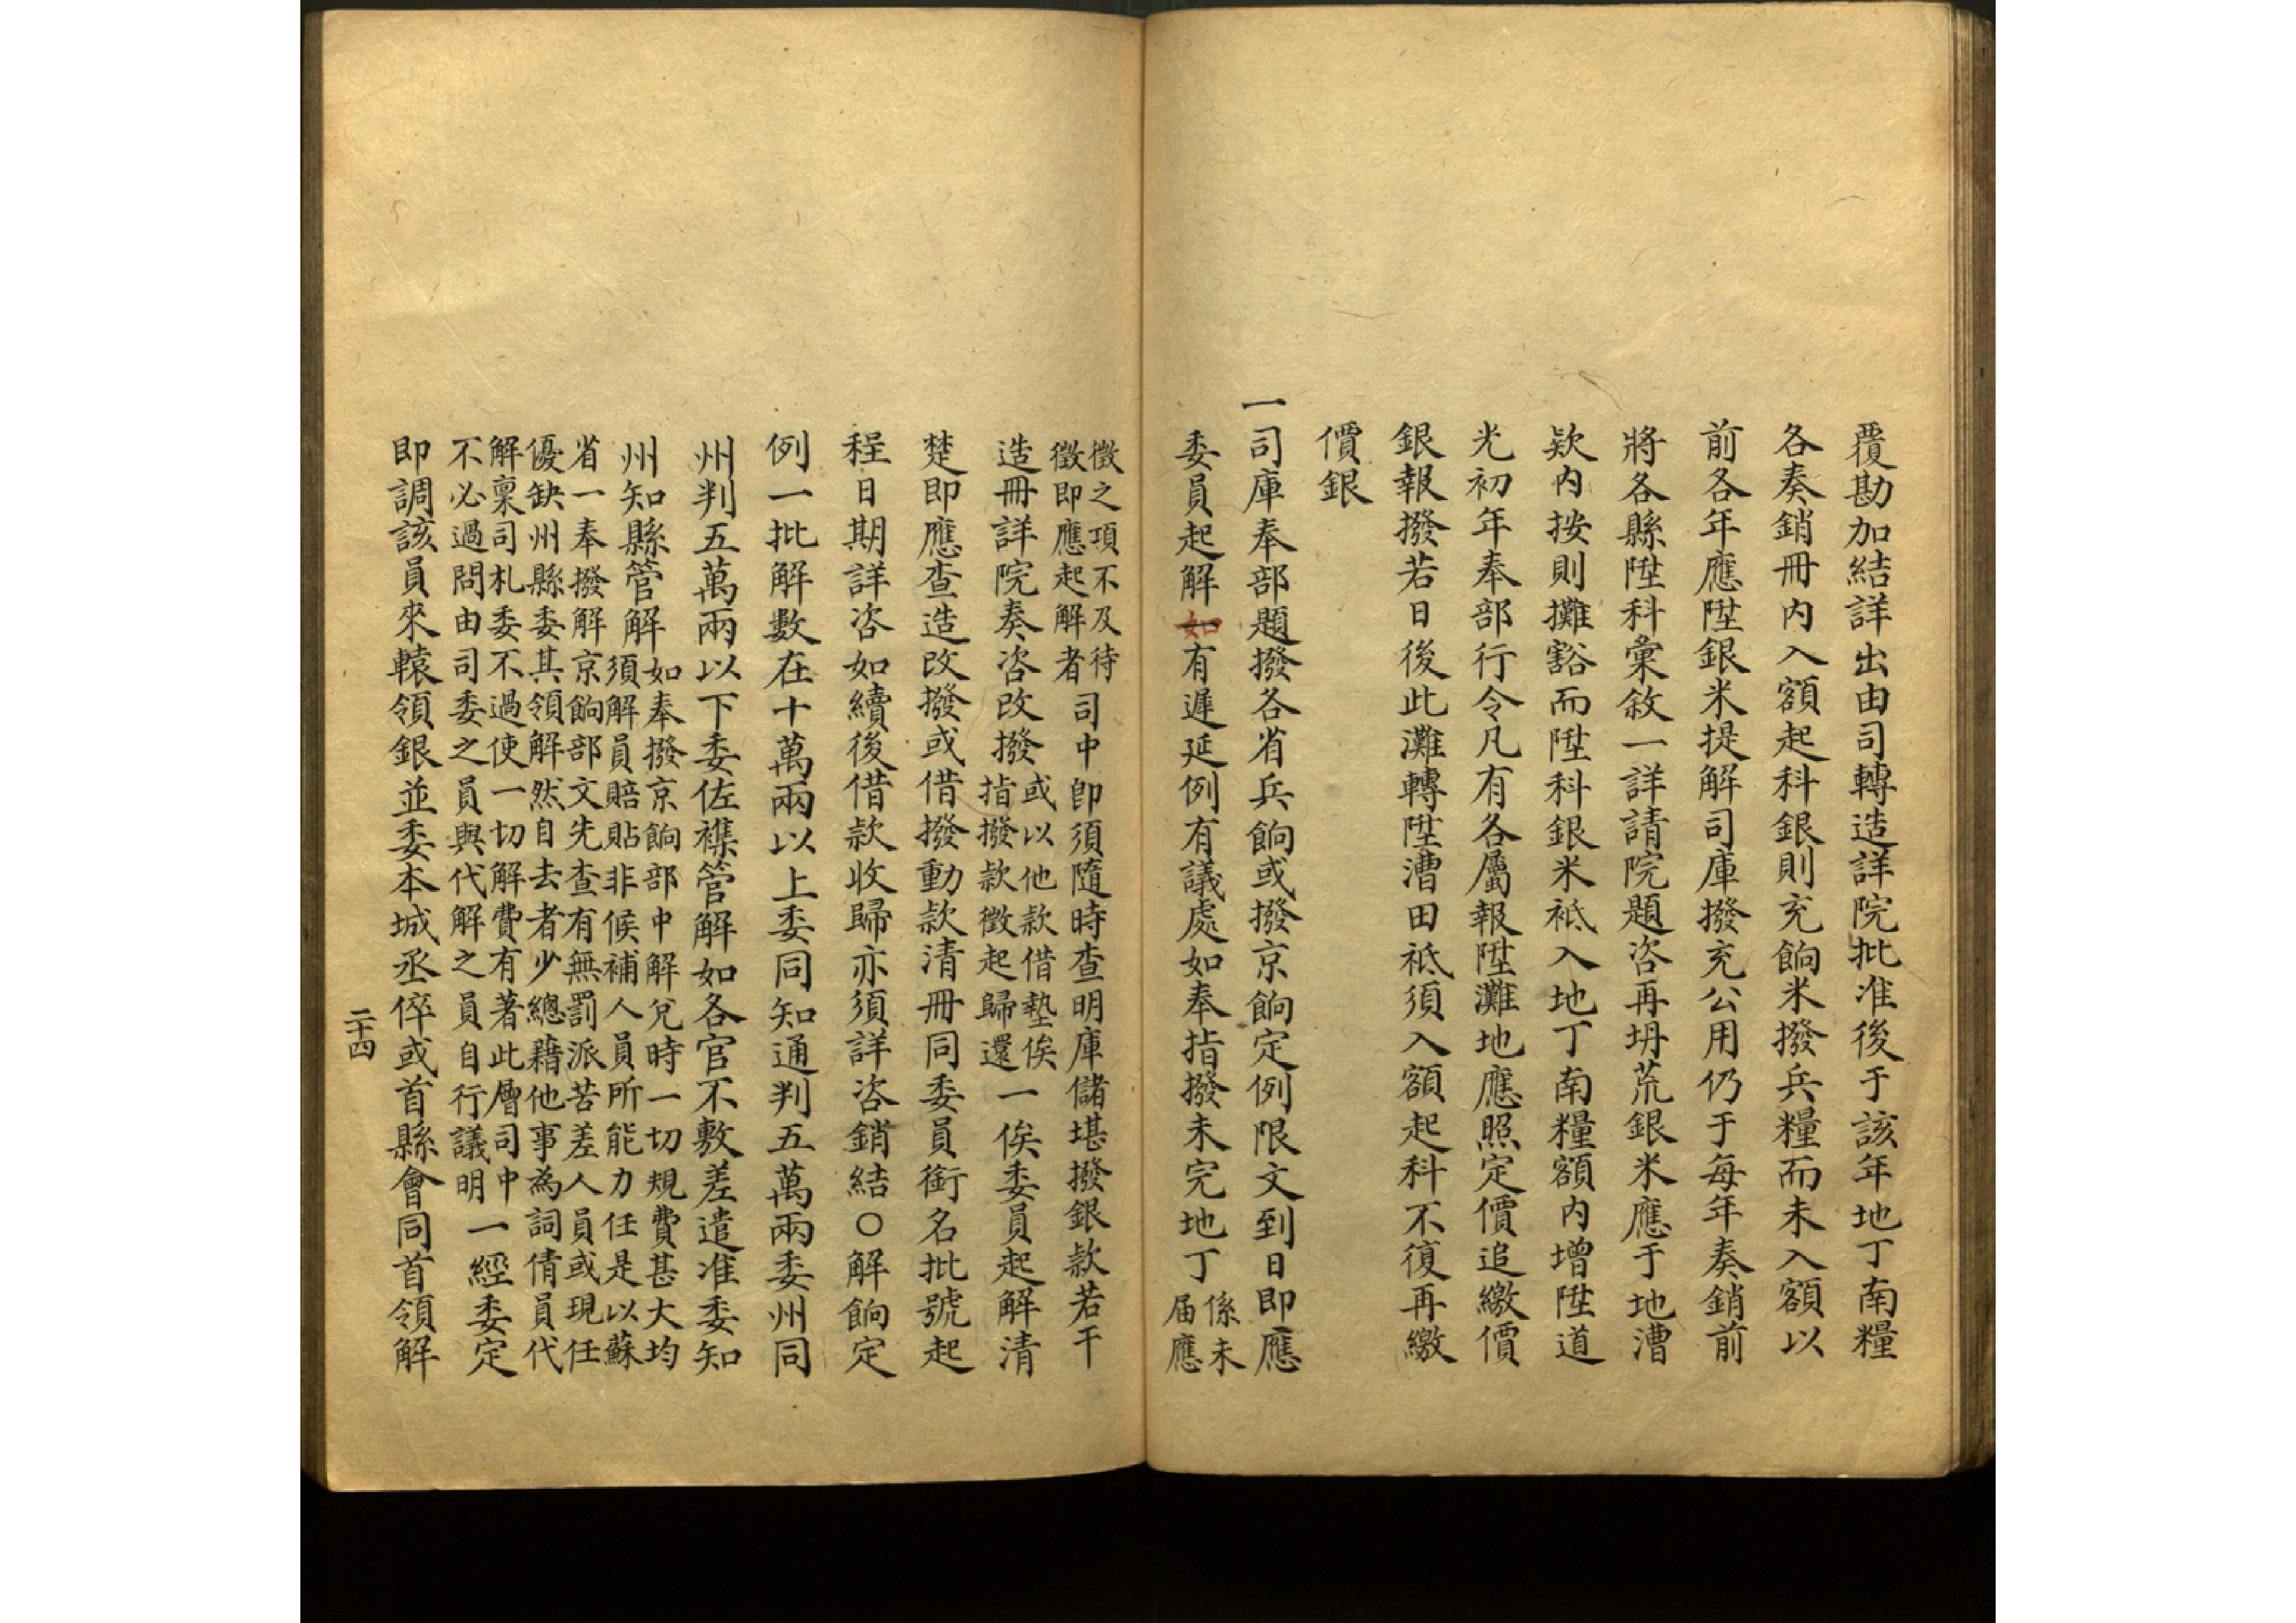 覆勘加結詳出由司轉造詳院批准後于該年地丁南糧
各奏銷冊内入額起科銀則充餉米撥兵糧而未入額以
前各年應陞銀米提解司庫撥充公用仍于每年奏銷前
將各縣陞科彙敘一詳請院題咨再坍荒銀米應于地漕
欵内按則攤豁而陞科銀米祗入地丁南糧額内增陞道
光初年奉部行令凡有各屬報陞灘地應照定價追繳價
銀報撥若日後此灘轉陞漕田祗須入額起科不復再繳
價銀
一司庫奉部題撥各省兵餉或撥京餉定例限文到日即應
委員起解如有遲延例有議處如奉指撥未完地丁係未
届應
徵之項不及待
徵即應起解者司中卽須隨時查明庫儲堪撥銀款若干
造冊詳院奏咨改撥或以他款借墊俟
指撥款徵起歸還一俟委員起解清
楚即應查造改撥或借撥動款清冊同委員銜名批號起
程日期詳咨如續後借款收歸亦須詳咨銷結〇解餉定
例一批解數在十萬兩以上委同知通判五萬兩委州同
州判五萬兩以下委佐襍管解如各官不敷差遣准委知
州知縣管解如奉撥京餉部中解兌時一切規費甚大均
須解員賠貼非候補人員所能力任是以蘇
省一奉撥解京餉部文先查有無罰派苦差人員或現任
優缺州縣委其領解然自去者少總藉他事為詞倩員代
解稟司札委不過使一切解費有著此層司中
不必過問由司委之員與代解之員自行議明一經委定
即調該員來轅領銀並委本城丞倅或首縣會同首領解
二十四